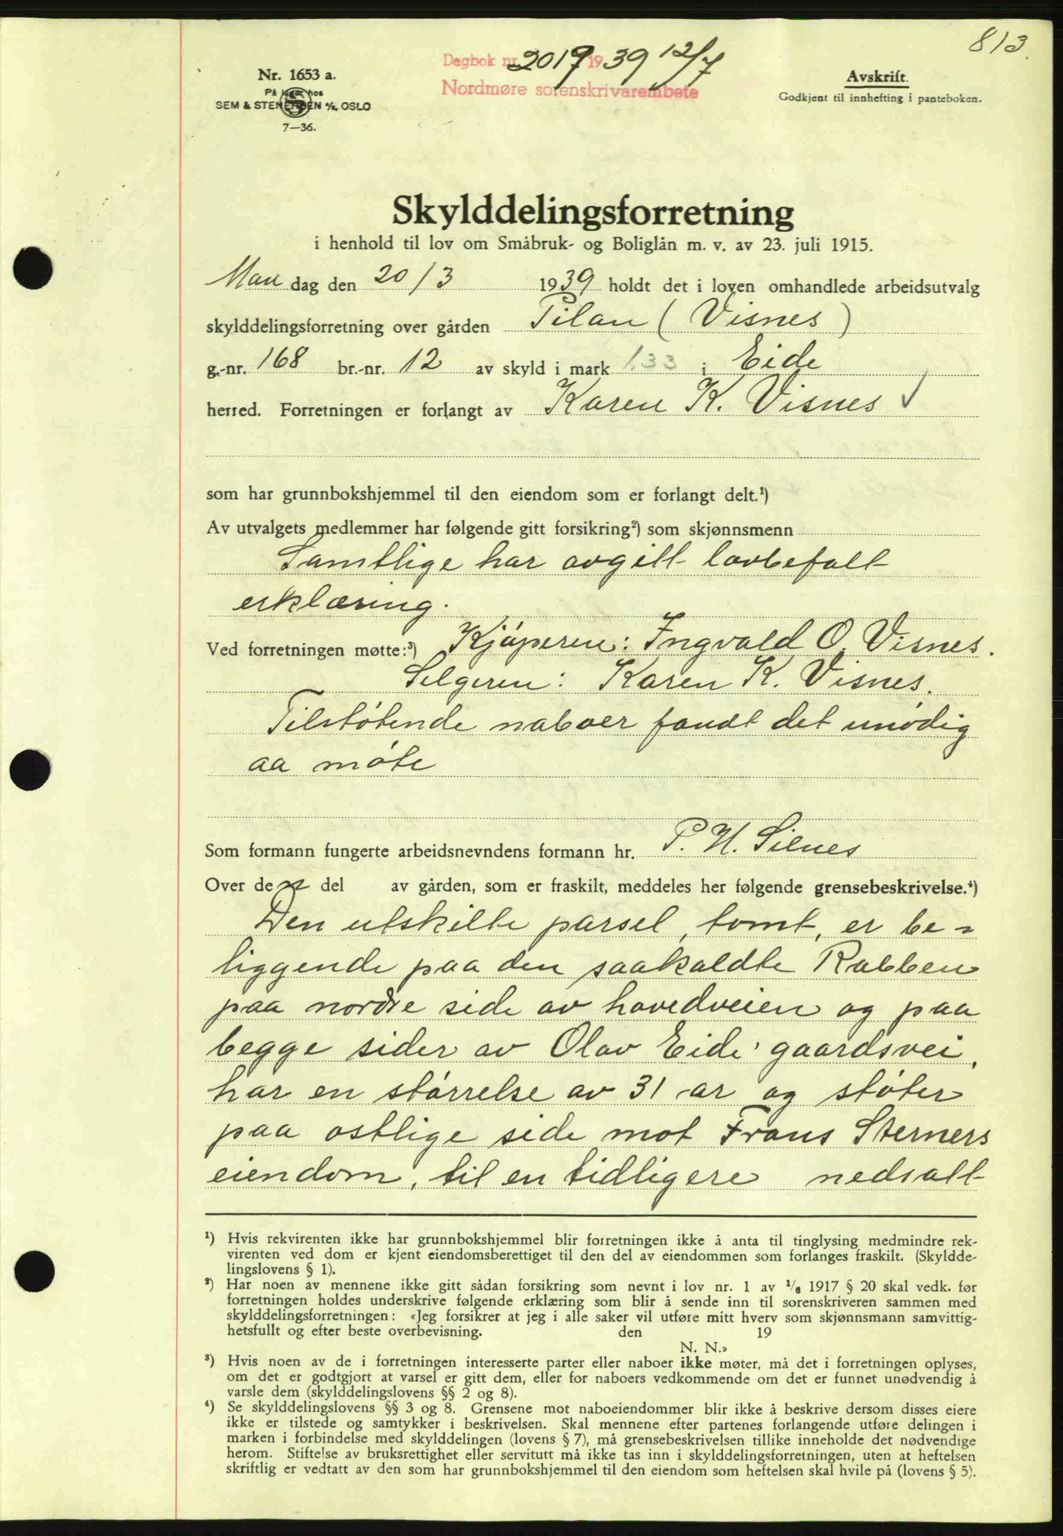 813
Dagbok nr. 2019 1939 12/7
Nordmøre sorenskrivarembete
Nr. 1653 a.
På lager hos
SEM & STENERSEN A/S, OSLO
7—36.
Avskrift.
Godkjent til innhefting i panteboken.
Skylddelingsforretning
i henhold til lov om Småbruk- og Boliglån m. v. av 23. juli 1915.
Man dag den 20/3 1939 holdt det i loven omhandlede arbeidsutvalg
skylddelingsforretning over gården Pilan (Visnes)
g.-nr. 168 br.-nr. 12 av skyld i mark 1.33 i Eide
herred. Forretningen er forlangt av Karen K. Visnes
som har grunnbokshjemmel til den eiendom som er forlangt delt.¹)
Av utvalgets medlemmer har følgende gitt forsikring²) som skjønnsmenn
Samtlige har avgitt lovbefalt
erklæring.
Ved forretningen møtte:³) Kjøperen: Ingvald O. Visnes.
Selgeren: Karen K. Visnes.
Tilstøtende naboer fandt det unødig
aa møte
Som formann fungerte arbeidsnevndens formann hr. P. H. Silnes
Over den del av gården, som er fraskilt, meddeles her følgende grensebeskrivelse.⁴)
Den utskilte parsel, tomt, er be-
liggende paa den saakaldte Rabben
paa nordre side av hovedveien og paa
begge sider av Olav Eide' gaardsvei,
har en størrelse av 31 ar og støter
paa østlige side mot Frans Sterners
eiendom, til en tidligere nedsatt
¹) Hvis rekvirenten ikke har grunnbokshjemmel blir forretningen ikke å anta til tinglysing medmindre rek-
virenten ved dom er kjent eiendomsberettiget til den del av eiendommen som forlanges fraskilt. (Skyldde-
lingslovens § 1).
²) Har noen av mennene ikke gitt sådan forsikring som nevnt i lov nr. 1 av 1/6 1917 § 20 skal vedk. før
forretningen holdes underskrive følgende erklæring som blir å sende inn til sorenskriveren sammen med
skylddelingsforretningen: «Jeg forsikrer at jeg i alle saker vil utføre mitt hverv som skjønnsmann samvittig-
hetsfullt og efter beste overbevisning. den 19
N. N.»
³) Hvis noen av de i forretningen interesserte parter eller naboer ikke møter, må det i forretningen oplyses,
om det er godtgjort at varsel er gitt dem, eller for naboers vedkommende om det er funnet unødvendig å
varsle dem (skylddelingslovens §§ 2 og 8).
⁴) Se skylddelingslovens §§ 3 og 8. Grensene mot naboeiendommer blir ikke å beskrive dersom disses eiere
ikke er tilstede og samtykker i beskrivelsen. Skal mennene efter partenes forlangende utføre delingen i
marken i forbindelse med skylddelingen (lovens § 7), må grensebeskrivelsen tillike inneholde det nødvendige
herom. Stiftelse av bruksrettighet eller servitutt må ikke tas inn i skylddelingsforretningen, uten at heftelsen
skriftlig er vedtatt av den som har grunnbokshjemmel til den eiendom som heftelsen skal hvile på (lovens § 5).